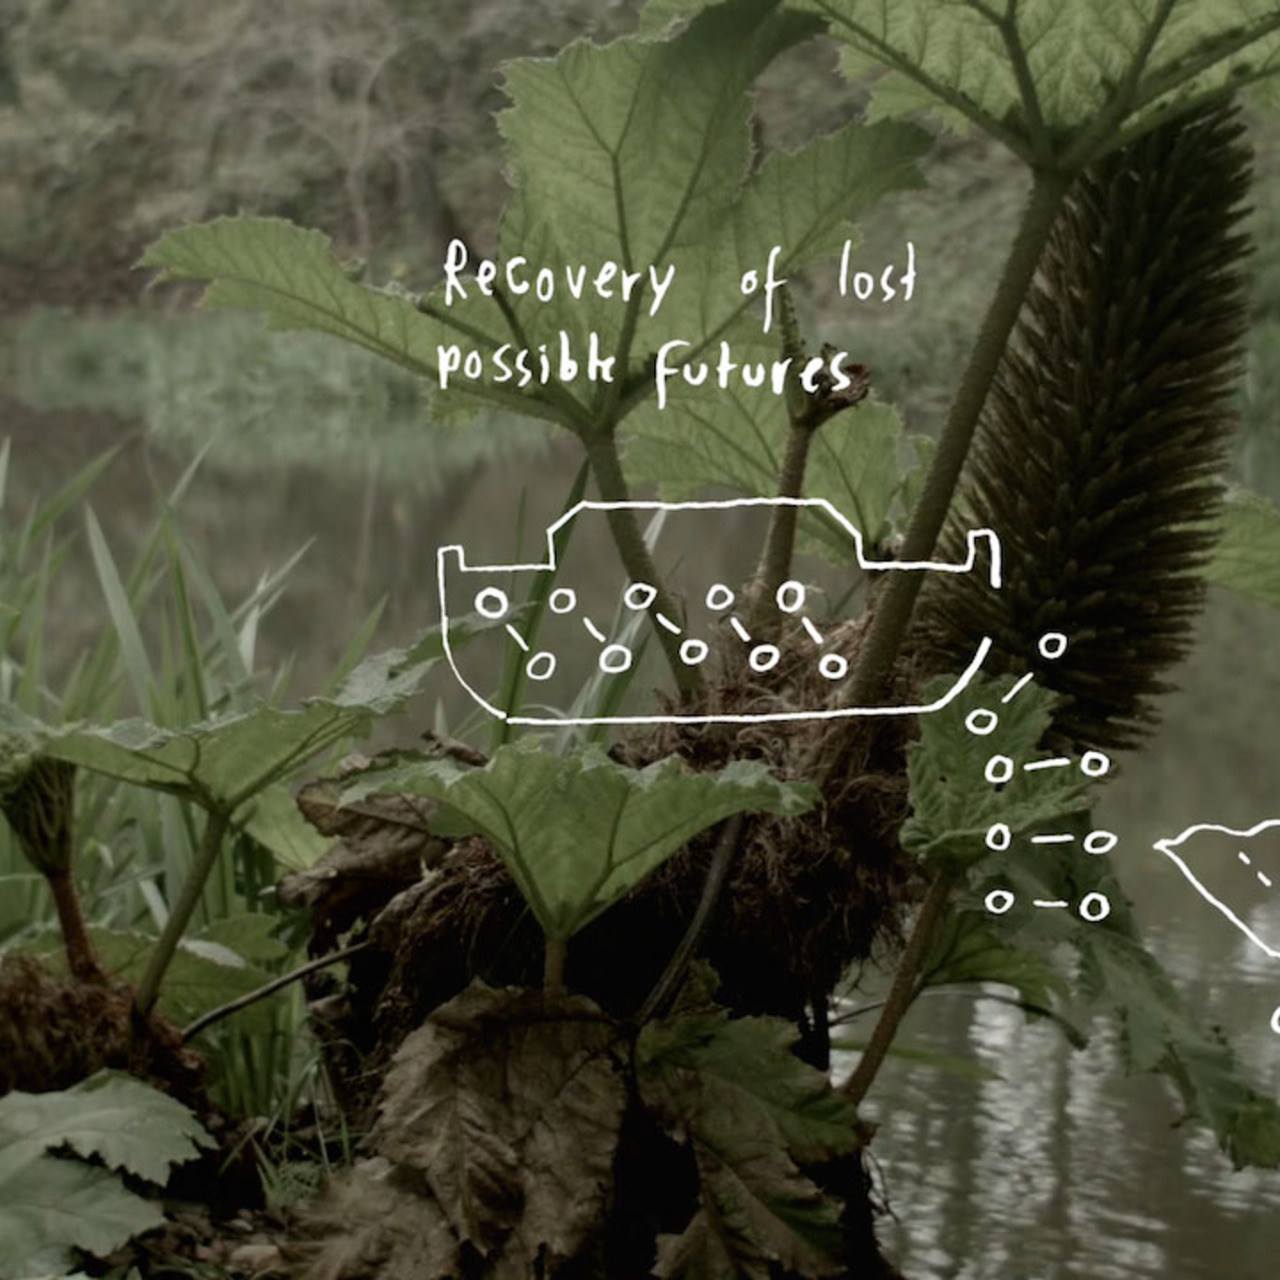 Recovery of lost
possible futures